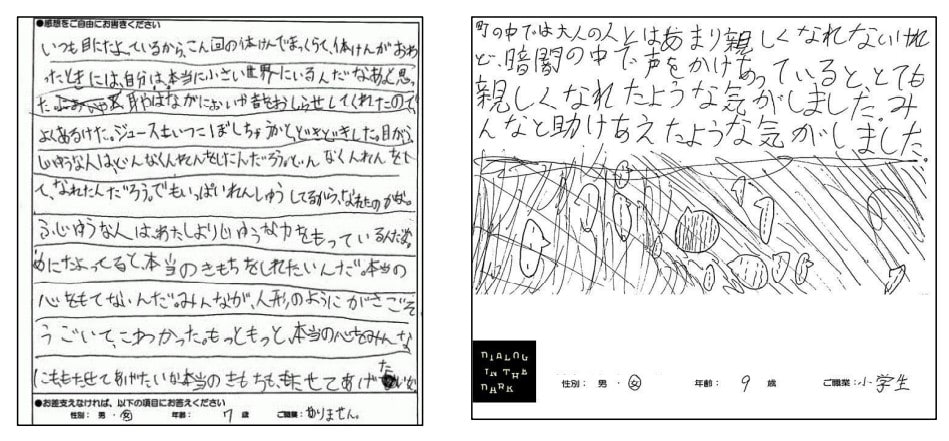 ●感想をご自由にお書きください
いつも目にたよっているから、こん回の体けんでまっくらで、体けんがおわ
ったときには、自分は、本当に小さい世界にいるんだなあと思っ
た。耳やはながにおいや音をおしらせしてくれたので
よくあるけた。ジュースもいつこぼしちゃうかとどきどきした。目がふ
じゆうな人は、どんなくんれんをしたんだろう。どんなくんれんをし
て、なれたんだろう。でもいっぱいれんしゅうしてるから、なれたのかな。
ふじゆうな人は、あたしよりじゆうな力をもっているんだな。
めにたよってると、本当のきもちをしれたいんだ。本当の
心をもてないんだ。みんなが、人形のようにがさごそ
うごいて、こわかった。もっともっと、本当の心をみんな
にももたせてあげたいな本当のきもちも、させてあげたいな
●お差支えなければ、以下の項目にお答えください
性別： 男 ・ 女 年齢： 7 歳 ご職業：ありません。
町の中では大人の人とはあまり親しくなれないけれ
ど、暗闇の中で声をかけあっていると、とても
親しくなれたような気がしました。み
んなと助けあえたような気がしました。
DIALOG
IN THE
DARK
性別： 男 ・ 女 年齢： 9 歳 ご職業：小学生